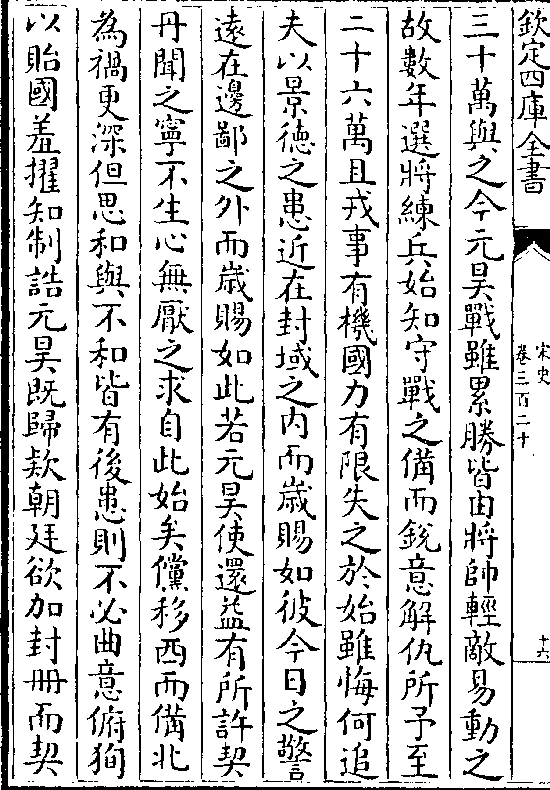 欽定四庫全書
宋史
卷三百二十
十六
三十萬與之今元昊戰雖累勝皆由將帥輕敵易動之
故數年選將練兵始知守戰之備而銳意解仇所予至
二十六萬且戎事有機國力有限失之於始雖悔何追
夫以景德之患近在封域之内而歲賜如彼今日之警
遠在邊鄙之外而歲賜如此若元昊使還益有所許契
丹聞之寧不生心無厭之求自此始矣儻移西而備北
為禍更深但思和與不和皆有後患則不必曲意俯狥
以貽國羞擢知制誥元昊既歸欵朝廷欲加封冊而契